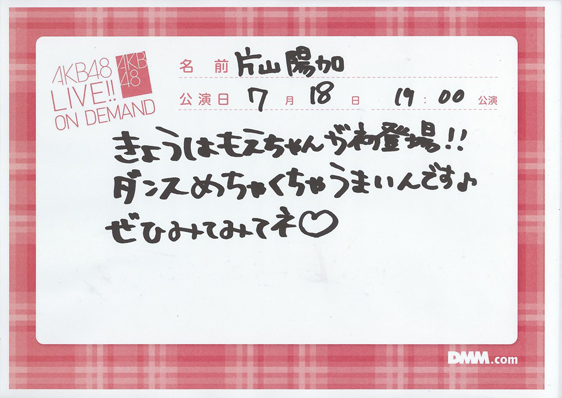 AKB48
LIVE!!
ON DEMAND
AKB
48
名前 片山陽加
公演日 7月18日 19:00 公演
きょうはもえちゃんが初登場!!
ダンスめちゃくちゃうまいんです♪
ぜひみてみてネ♡
DMM.com